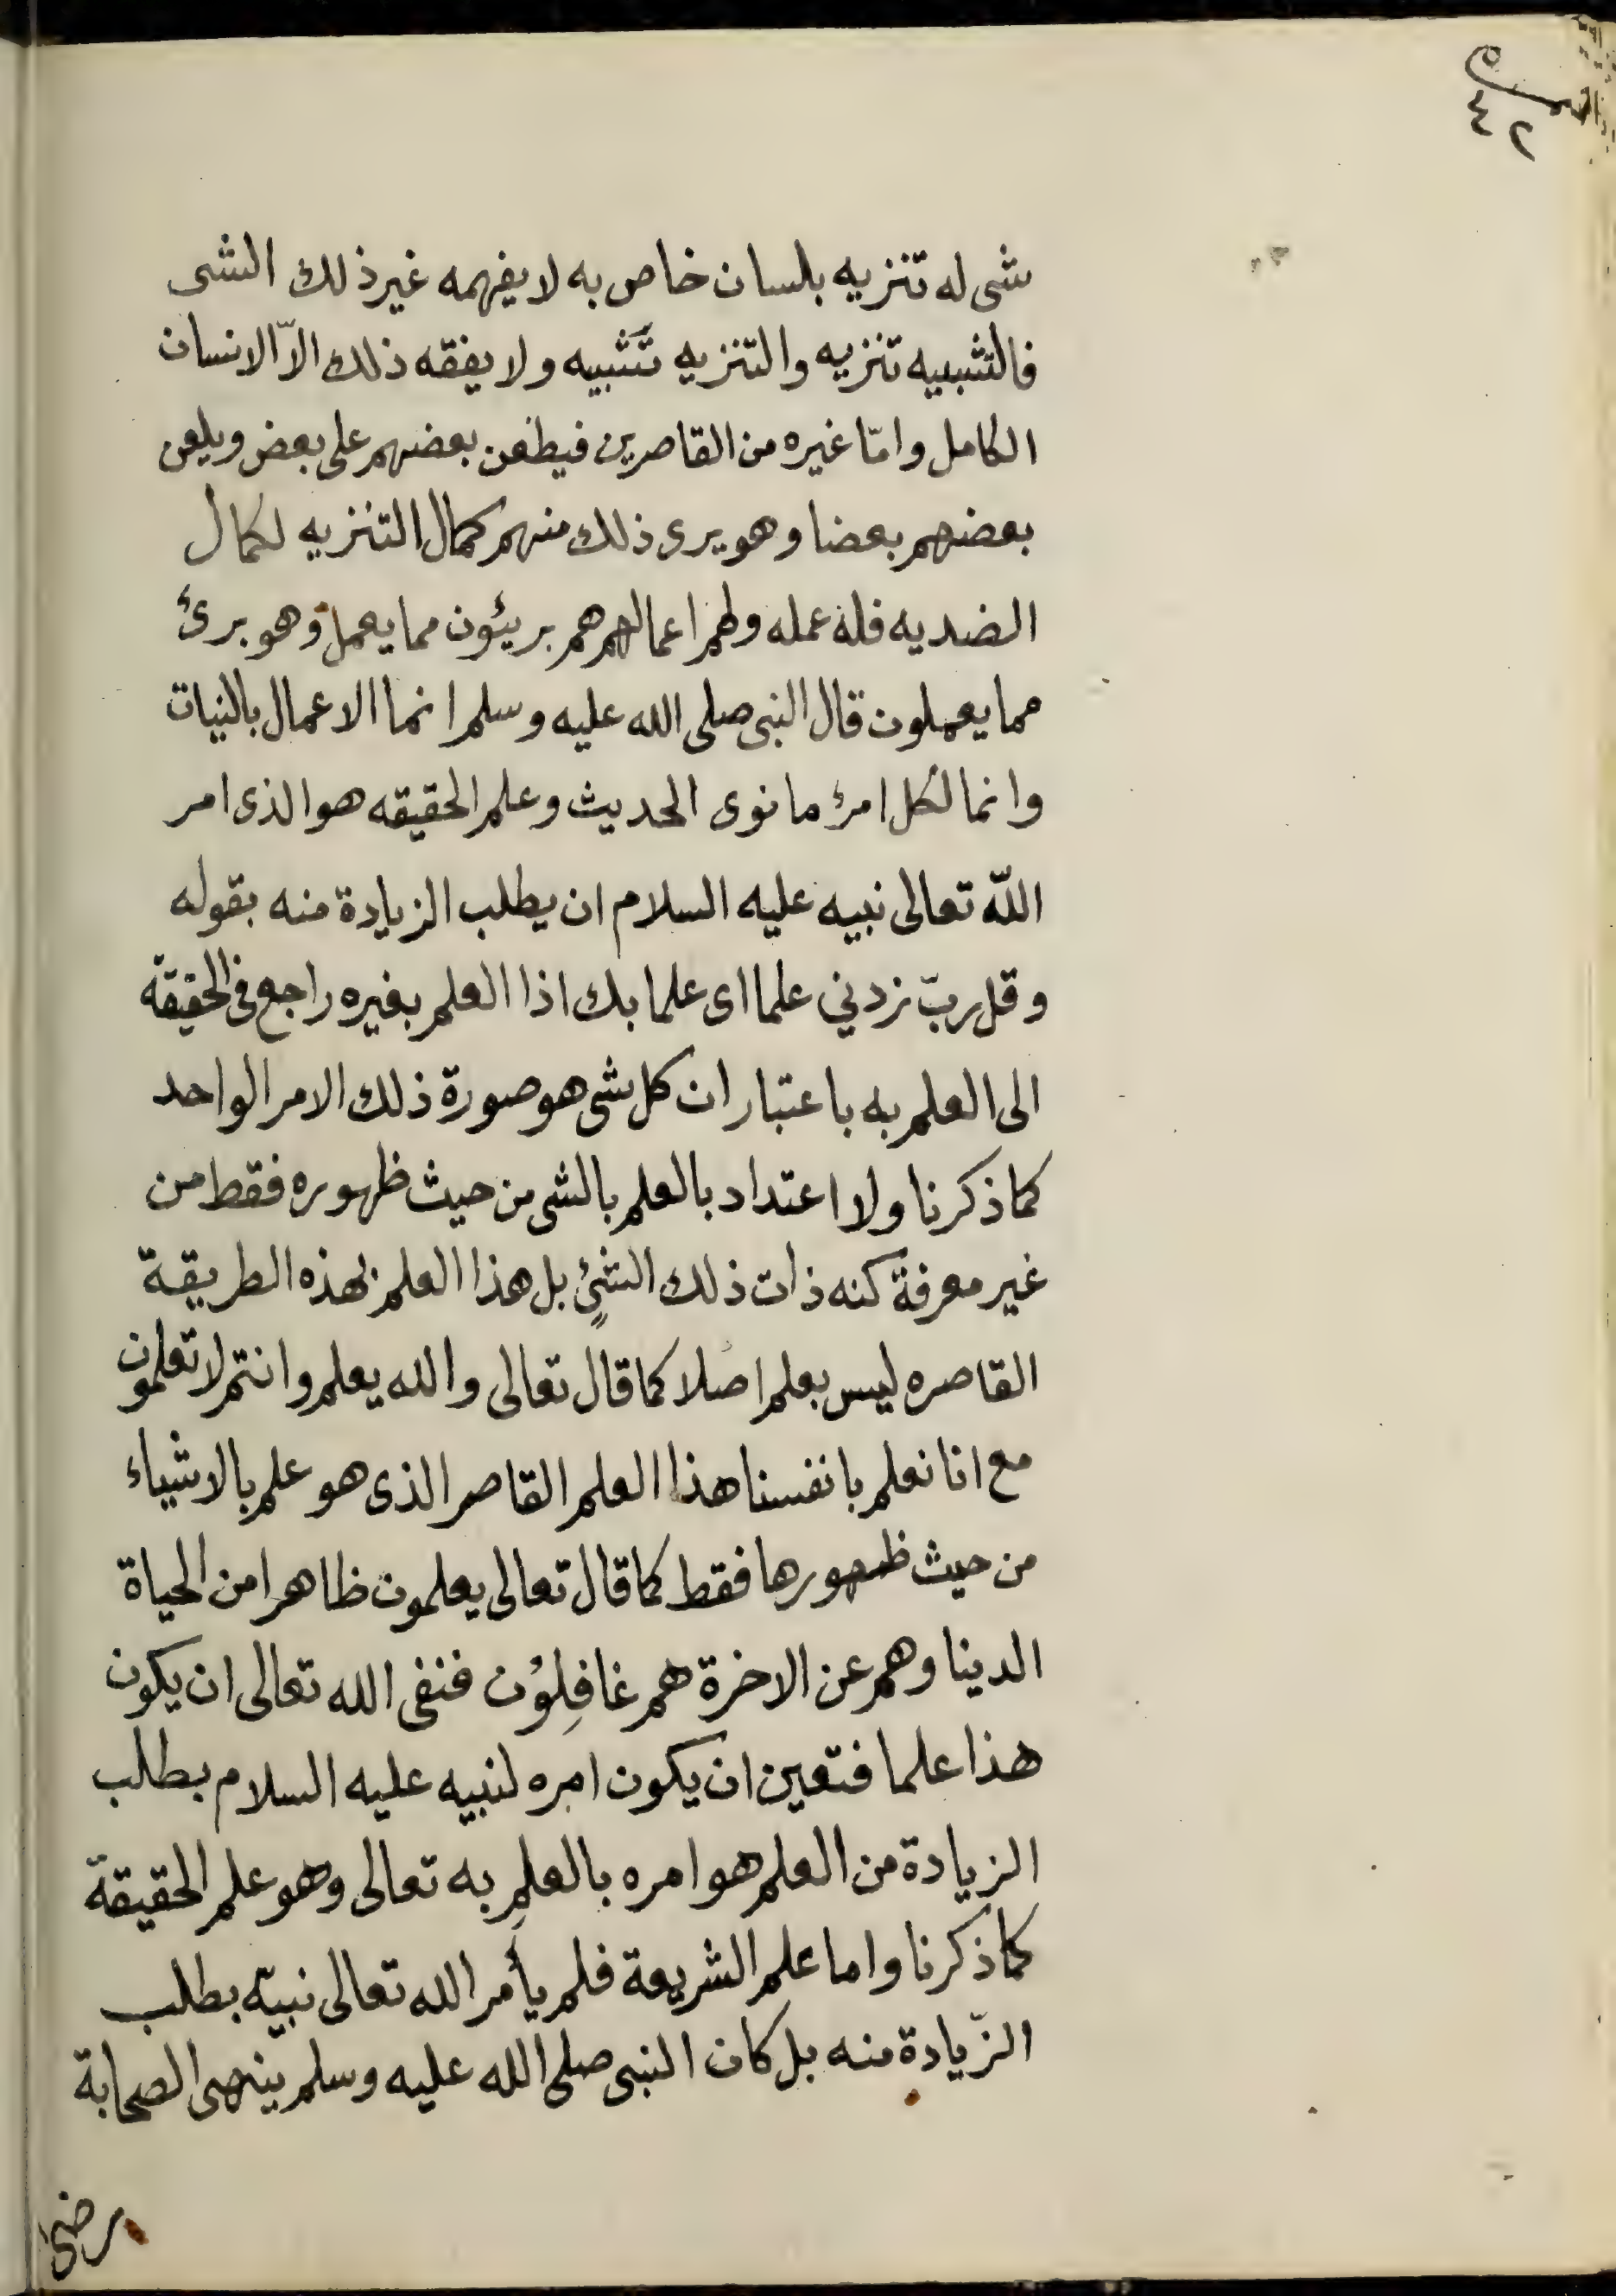 ٤٢
شى له تنزيه بلسان خاص به لا يفهمه غير ذلك الشى
فالتشبيه تنزيه والتنزيه تشبيه ولا يفقه ذلك الاّ الانسان
الكامل وامّا غيره من القاصرين فيطعن بعضهم على بعض ويلعن
بعضهم بعضا وهو يرى ذلك منهم كمال التنزيه لكمال
الضديه فله عمله ولهم اعمالهم هم بريئون مما يعمل وهو برئ
مما يعملون قال النبى صلى الله عليه وسلم انما الاعمال بالنيات
وانما لكل امرئ ما نوى الحديث وعلم الحقيقه هو الذى امر
اللّه تعالى نبيه عليه السلام ان يطلب الزيادة منه بقوله
وقل ربّ زدني علما اى علما بك اذا العلم بغيره راجع فى الحقيقة
الى العلم به باعتبار ان كل شى هو صورة ذلك الامر الواحد
كما ذكرنا ولا اعتداد بالعلم بالشى من حيث ظهوره فقط من
غير معرفة كنه ذات ذلك الشئ بل هذا العلم بهذه الطريقة
القاصره ليس بعلم اصلا كما قال تعالى والله يعلم وانتم لا تعلمون
مع انا نعلم بانفسنا هذا العلم القاصر الذى هو علم بالاشياء
من حيث ظهورها فقط كما قال تعالى يعلمون ظاهرا من الحياة
الدينا وهم عن الاخرة هم غافِلوُن فنفى الله تعالى ان يكون
هذا علما فتعين ان يكون امره لنبيه عليه السلام بطلب
الزيادة من العلم هو امره بالعلمِ به تعالى وهو علم الحقيقة
كما ذكرنا واما علم الشريعة فلم يأمر الله تعالى نبيّه بطلب
الزّيادة منه بل كان النبى صلى الله عليه وسلم ينهى الصحابة
رضى